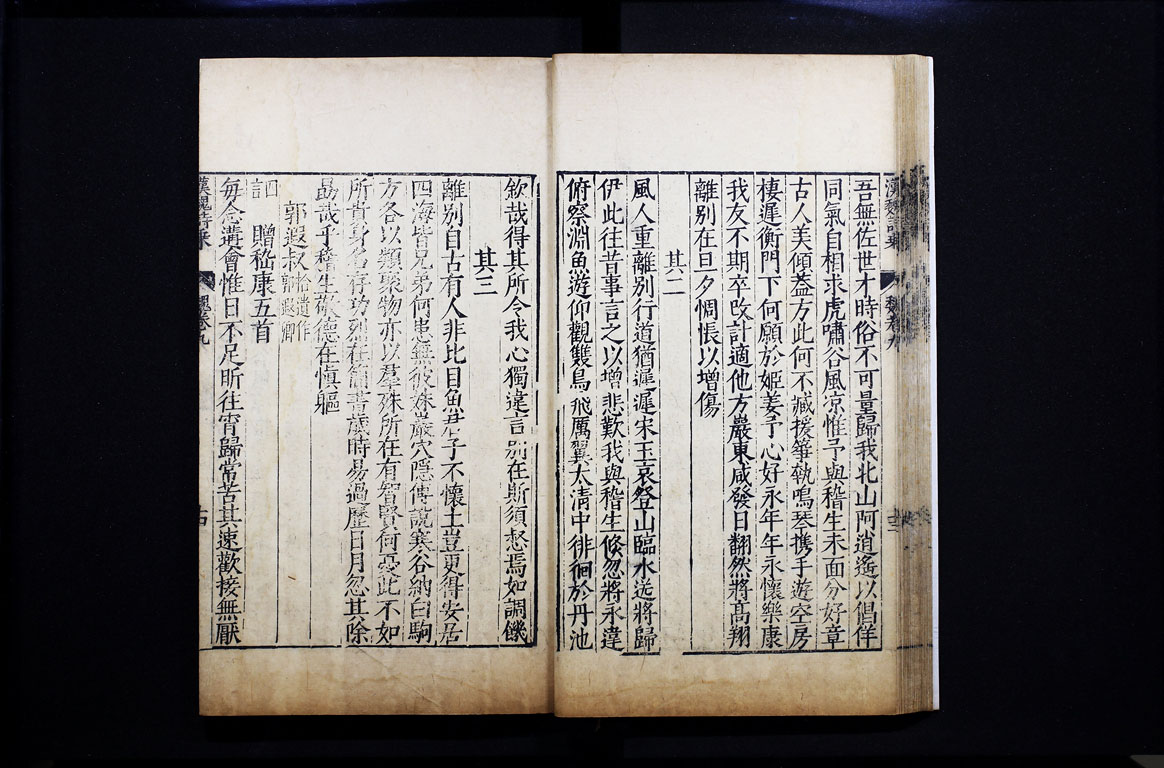 吾無佐世才時俗不可量歸我北山阿逍遙以倡佯
同氣自相求虎嘯谷風凉惟予與嵇生未面分好章
古人美傾蓋方此何不臧援箏執鳴琴携手遊空房
棲遲衡門下何願於姬姜予心好永年年永懷樂康
我友不期卒改計適他方嚴東咸發日翻然將高翔
離別在旦夕惆悵以增傷
其二
風人重離別行道猶遲遲宋玉哀登山臨水送將歸
伊此往昔事言之以增悲歎我與嵇生倐忽將永違
俯察淵魚遊仰觀雙鳥飛厲翼太清中徘徊於丹池
欽哉得其所令我心獨違言別在斯須惄焉如調饑
其三
離別自古有人非比目魚君子不懷土豈更得安居
四海皆兄弟何患無彼姝巖穴隱傅說寒谷納白駒
方各以類聚物亦以羣殊所在有智賢何憂此不如
所貴身名存功烈在簡書歲時易過歷日月忽其除
勗哉乎嵇生敬德在愼軀
郭遐叔
贈嵇康五首
每念遘會惟日不足昕往宵歸常苦其速歡接無厭
漢魏詩乘
魏卷九